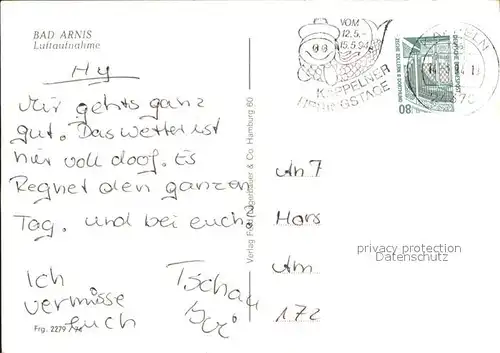 BAD ARNIS
Luftaufnahme
Hy
Mir gehts ganz
gut. Das wetter ist
hier voll doof. Es
Regnet den ganzen
Tag. und bei euch?
Ich
vermisse
euch
Tschau
Frg. 2279 / 94
Verlag Foto Hamburg 60
VOM
12.5.-
15.5.94
KAPPELNER
HERINGSTAGE
DEUTSCHE BUNDESPOST
ZECHE ZOLLERN II DORTMUND
80
An 7
Hors
Am
172
privacy protection
Datenschutz